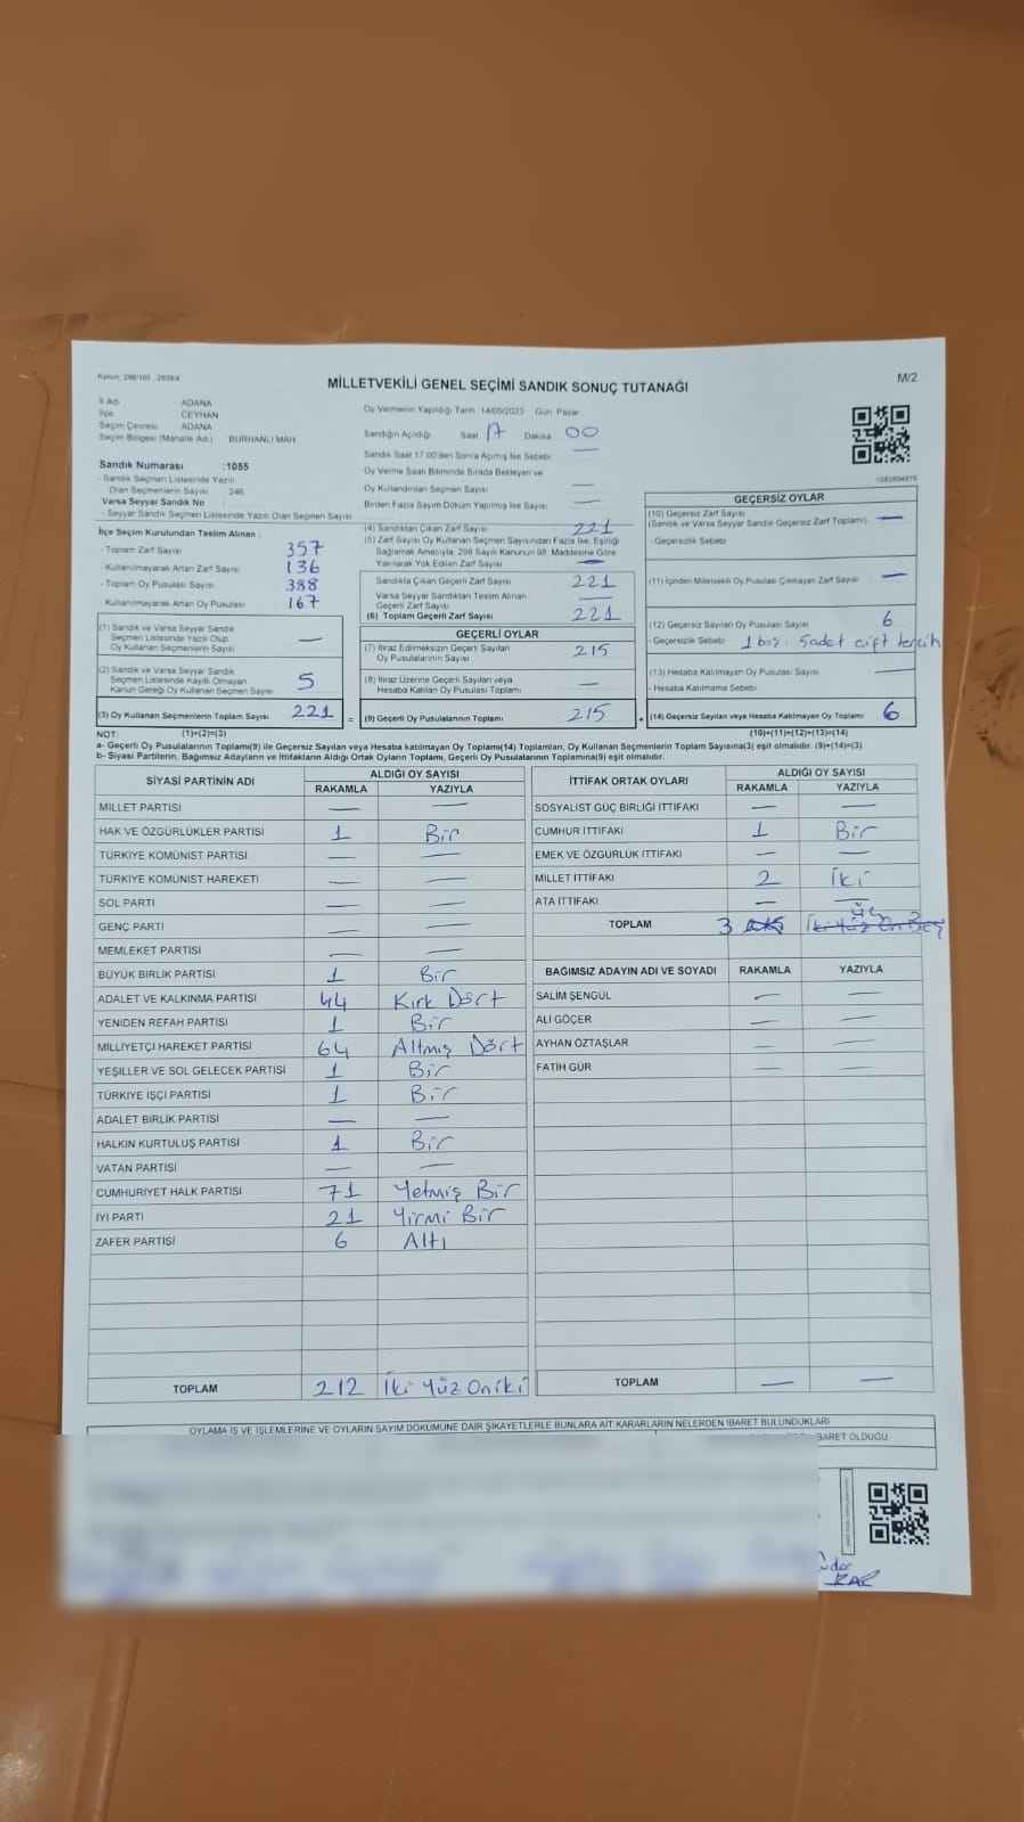 MİLLETVEKİLİ GENEL SEÇİMİ SANDIK SONUÇ TUTANAĞI
M/2
İl Adı : ADANA
İlçe : CEYHAN
Seçim Çevresi : ADANA
Seçim Bölgesi (Mahalle Adı) : BURHANLI MAH
Oy Vermenin Yapıldığı Tarih: 14/05/2023 Gün: Pazar
Sandığın Açıldığı Saat 17 Dakika 00
Sandık Saat 17.00'den Sonra Açılmış İse Sebebi
Oy Verme Saati Bitiminde Sırada Bekleyen ve
Oy Kullandırılan Seçmen Sayısı —
Birden Fazla Sayım Döküm Yapılmış İse Sayısı —
Sandık Numarası :1055
- Sandık Seçmen Listesinde Yazılı
Olan Seçmenlerin Sayısı : 246
Varsa Seyyar Sandık No
- Seyyar Sandık Seçmen Listesinde Yazılı Olan Seçmen Sayısı
İlçe Seçim Kurulundan Teslim Alınan :
- Toplam Zarf Sayısı 357
- Kullanılmayarak Artan Zarf Sayısı 136
- Toplam Oy Pusulası Sayısı 388
- Kullanılmayarak Artan Oy Pusulası 167
(1) Sandık ve Varsa Seyyar Sandık
Seçmen Listesinde Yazılı Olup
Oy Kullanan Seçmenlerin Sayısı —
(2) Sandık ve Varsa Seyyar Sandık
Seçmen Listesinde Kayıtlı Olmayan
Kanun Gereği Oy Kullanan Seçmen Sayısı 5
(3) Oy Kullanan Seçmenlerin Toplam Sayısı 221
(4) Sandıktan Çıkan Zarf Sayısı 221
(5) Zarf Sayısı Oy Kullanan Seçmen Sayısından Fazla İse, Eşitliği
Sağlamak Amacıyla, 298 Sayılı Kanunun 98. Maddesine Göre
Yakılarak Yok Edilen Zarf Sayısı —
Sandıkta Çıkan Geçerli Zarf Sayısı 221
Varsa Seyyar Sandıktan Teslim Alınan
Geçerli Zarf Sayısı —
(6) Toplam Geçerli Zarf Sayısı 221
GEÇERLİ OYLAR
(7) İtiraz Edilmeksizin Geçerli Sayılan
Oy Pusulalarının Sayısı 215
(8) İtiraz Üzerine Geçerli Sayılan veya
Hesaba Katılan Oy Pusulası Toplamı —
= (9) Geçerli Oy Pusulalarının Toplamı 215
GEÇERSİZ OYLAR
(10) Geçersiz Zarf Sayısı
(Sandık ve Varsa Seyyar Sandık Geçersiz Zarf Toplamı) —
- Geçersizlik Sebebi
(11) İçinden Milletvekili Oy Pusulası Çıkmayan Zarf Sayısı —
(12) Geçersiz Sayılan Oy Pusulası Sayısı 6
- Geçersizlik Sebebi 1 boş. Sadet çift tercih
(13) Hesaba Katılmayan Oy Pusulası Sayısı —
- Hesaba Katılmama Sebebi
+ (14) Geçersiz Sayılan veya Hesaba Katılmayan Oy Toplamı 6
NOT: (1)+(2)=(3) (10)+(11)+(12)+(13)=(14)
a- Geçerli Oy Pusulalarının Toplamı(9) ile Geçersiz Sayılan veya Hesaba katılmayan Oy Toplamı(14) Toplamları, Oy Kullanan Seçmenlerin Toplam Sayısına(3) eşit olmalıdır. (9)+(14)=(3)
b- Siyasi Partilerin, Bağımsız Adayların ve İttifakların Aldığı Ortak Oyların Toplamı, Geçerli Oy Pusulalarının Toplamına(9) eşit olmalıdır.
SİYASİ PARTİNİN ADI ALDIĞI OY SAYISI
RAKAMLA YAZIYLA
MİLLET PARTİSİ — —
HAK VE ÖZGÜRLÜKLER PARTİSİ 1 Bir
TÜRKİYE KOMÜNİST PARTİSİ — —
TÜRKİYE KOMÜNİST HAREKETİ — —
SOL PARTİ — —
GENÇ PARTİ — —
MEMLEKET PARTİSİ — —
BÜYÜK BİRLİK PARTİSİ 1 Bir
ADALET VE KALKINMA PARTİSİ 44 Kırk Dört
YENİDEN REFAH PARTİSİ 1 Bir
MİLLİYETÇİ HAREKET PARTİSİ 64 Altmış Dört
YEŞİLLER VE SOL GELECEK PARTİSİ 1 Bir
TÜRKİYE İŞÇİ PARTİSİ 1 Bir
ADALET BİRLİK PARTİSİ — —
HALKIN KURTULUŞ PARTİSİ 1 Bir
VATAN PARTİSİ — —
CUMHURİYET HALK PARTİSİ 71 Yetmiş Bir
İYİ PARTİ 21 Yirmi Bir
ZAFER PARTİSİ 6 Altı
TOPLAM 212 İki Yüz Oniki
İTTİFAK ORTAK OYLARI ALDIĞI OY SAYISI
RAKAMLA YAZIYLA
SOSYALİST GÜÇ BİRLİĞİ İTTİFAKI — —
CUMHUR İTTİFAKI 1 Bir
EMEK VE ÖZGÜRLÜK İTTİFAKI — —
MİLLET İTTİFAKI 2 İki
ATA İTTİFAKI — —
TOPLAM 3 üç
BAĞIMSIZ ADAYIN ADI VE SOYADI RAKAMLA YAZIYLA
SALİM ŞENGÜL — —
ALİ GÖÇER — —
AYHAN ÖZTAŞLAR — —
FATİH GÜR — —
TOPLAM — —
OYLAMA İŞ VE İŞLEMLERİNE VE OYLARIN SAYIM DÖKÜMÜNE DAİR ŞİKAYETLERLE BUNLARA AİT KARARLARIN NELERDEN İBARET BULUNDUKLARI
BARET OLDUĞU